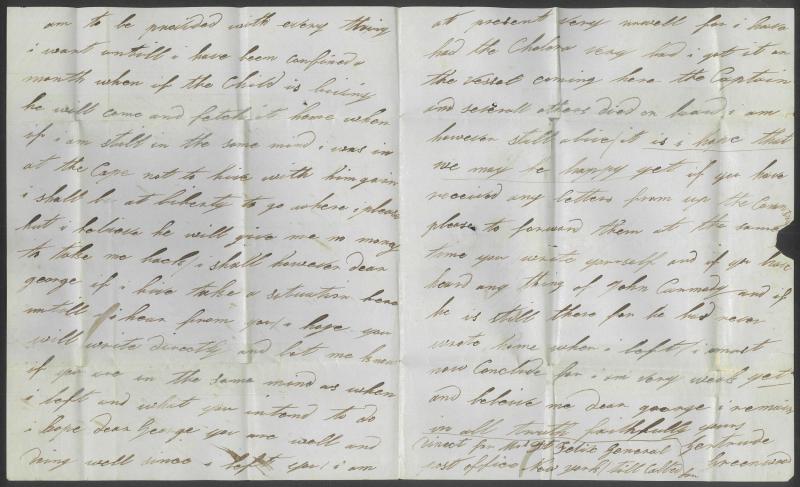 am to be provided with every thing
i want untill i have been confined a
month when if the Child is living
he will come and fetch it home when
if i am still in the same mind i was in
at the Cape not to live with him again
i shall be at liberty to go where i please
but i believe he will give me no money
to take me back / i shall however dear
george if i live take a situation here
untill i hear from you / i hope you
will write directly and let me know
if you are in the same mind as when
i left and what you intend to do
i hope dear George you are well and
doing well since i left you / i am
at present very unwell for i have
had the Cholera very bad i got it on
the vessel coming here the Captain
and severall others died on board i am
however still alive / it is i hope that
we may be happy yet if you have
received any letters from up the Country
please to forward them at the same
time you write yourself and if you have
heard any thing of John and if
he is still there for he had never
wrote home when i left / i must
now Conclude for i am very weak yet
and believe me dear george i remain
in all truth faithfully yours
Gertrude
Greenwood
Direct for Mrs St Felix General
post office New york / till Called for